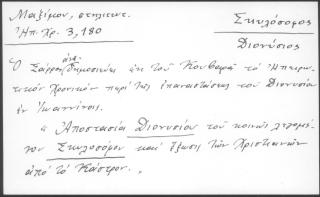 Μαξίμου, στηλιτευτ.
Ἠπ. Χρ. 3, 180
Σκυλόσοφος
Διονύσιος
Ὁ Σάρρος ἀνα-δημοσιεύει ἐκ τοῦ Κουβαρᾶ τὸ Ἠπειρω-
τικὸν Χρονικὸν περὶ τῆς ἐπαναστάσεως τοῦ Διονυσίου
ἐν Ἰωαννίνοις.
« Ἀποστασία Διονυσίου τοῦ κοινῶς λεγομέ-
νου Σκυλοσόφου καὶ ἔξωσις τῶν Χριστιανῶν
ἀπὸ τὸ Κάστρον,,